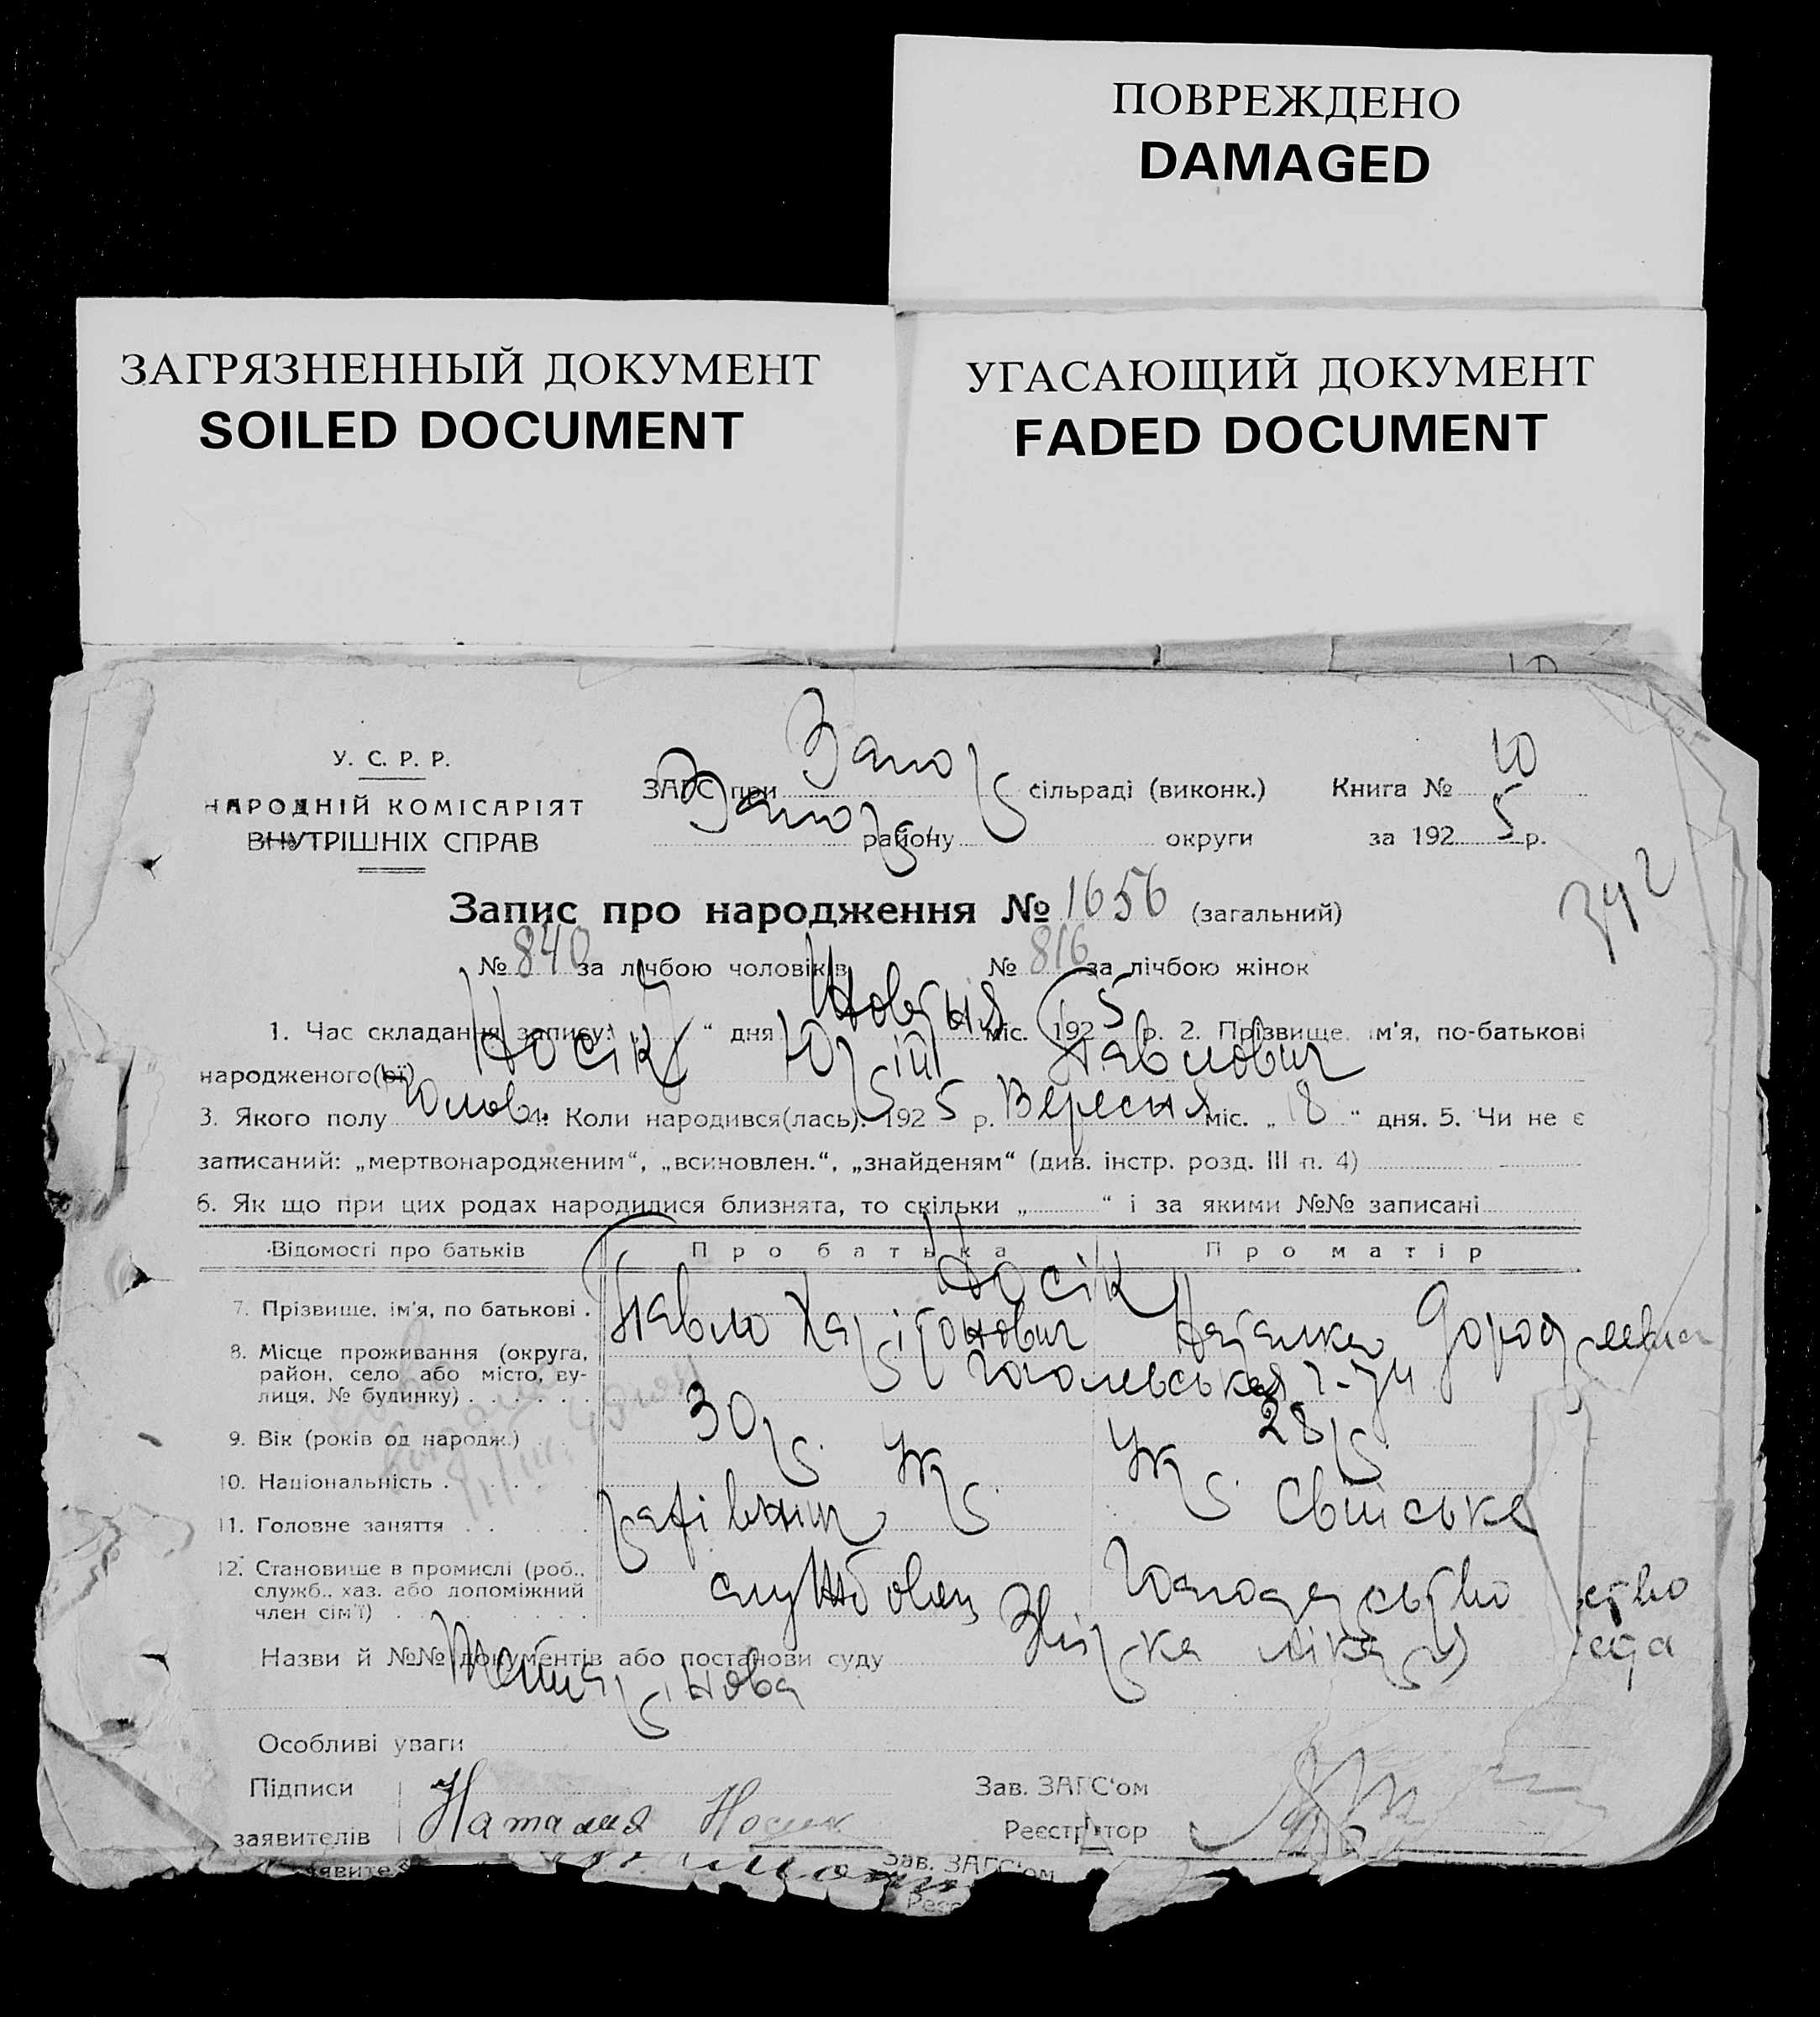 ПОВРЕЖДЕНО
DAMAGED
ЗАГРЯЗНЕННЫЙ ДОКУМЕНТ
SOILED DOCUMENT
УГАСАЮЩИЙ ДОКУМЕНТ
FADED DOCUMENT
10
У. С. Р. Р.
НАРОДНІЙ КОМІСАРІЯТ
ВНУТРІШНІХ СПРАВ
ЗАГС при Запор сільраді (виконк.) Книга № 10
Запор району округи за 1925 р.
Запис про народження № 1656 (загальний)
№ 840 за лічбою чоловіків № 816 за лічбою жінок
1. Час складання запису: 7 “ дня Жовтня міс. 1925 р. 2. Прізвище, ім'я, по-батькові
народженого(ої) Носік Юрій Павлович
3. Якого полу Чолов. 4. Коли народився(лась). 1925 р. Вересня міс. „ 18 “ дня. 5. Чи не є
записаний: „мертвонародженим“, „всиновлен.“, „знайденям“ (див. інстр. розд. III п. 4)
6. Як що при цих родах народилися близнята, то скільки „ “ і за якими №№ записані
Відомості про батьків Про батька Про матір
Носік
7. Прізвище, ім'я, по батькові . Павло Харітонович Наталка
8. Місце проживання (округа,
район, село або місто, ву-
лиця, № будинку) . . . . . . Гоголевська
9. Вік (років од народж.) 30р. 28р.
10. Національність . Укр. Укр.
11. Головне заняття . . рахівник Свійське
12. Становище в промислі (роб.,
служб., хаз. або допоміжний
член сім'ї) . . . . . . службовец господарство
Назви й №№ документів або постанови суду лікаря
Особливі уваги
Підписи
заявителів Наталия Носик
Зав. ЗАГС'ом
Реєстратор
Зав. ЗАГС'ом